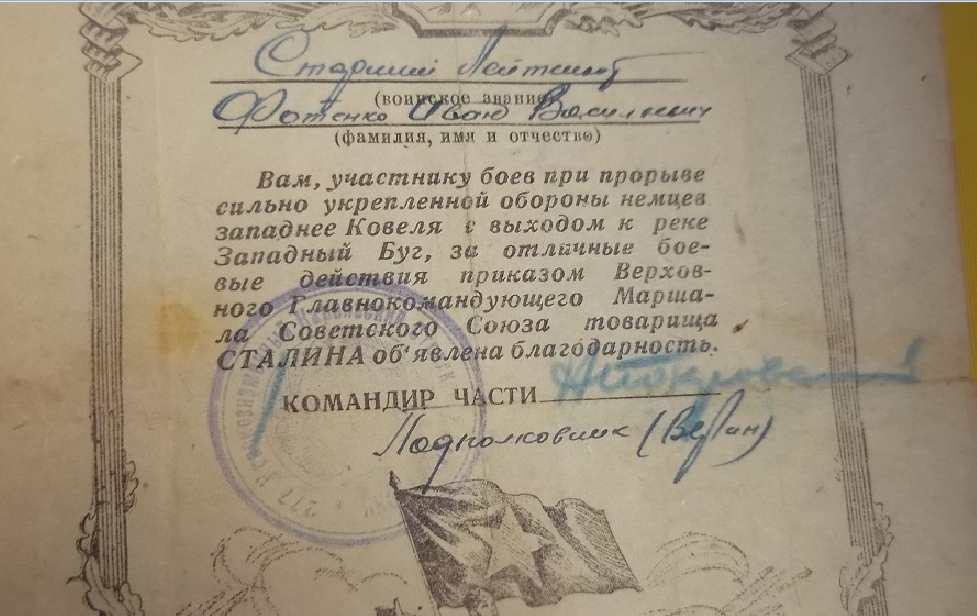 Старший Лейтенант
(воинское звание)
Фотенко Иван Васильевич
(фамилия, имя и отчество)
Вам, участнику боев при прорыве
сильно укрепленной обороны немцев
западнее Ковеля с выходом к реке
Западный Буг, за отличные бое-
вые действия приказом Верхов-
ного Главнокомандующего Марша-
ла Советского Союза товарища
СТАЛИНА об'явлена благодарность.
КОМАНДИР ЧАСТИ
Подполковник
277